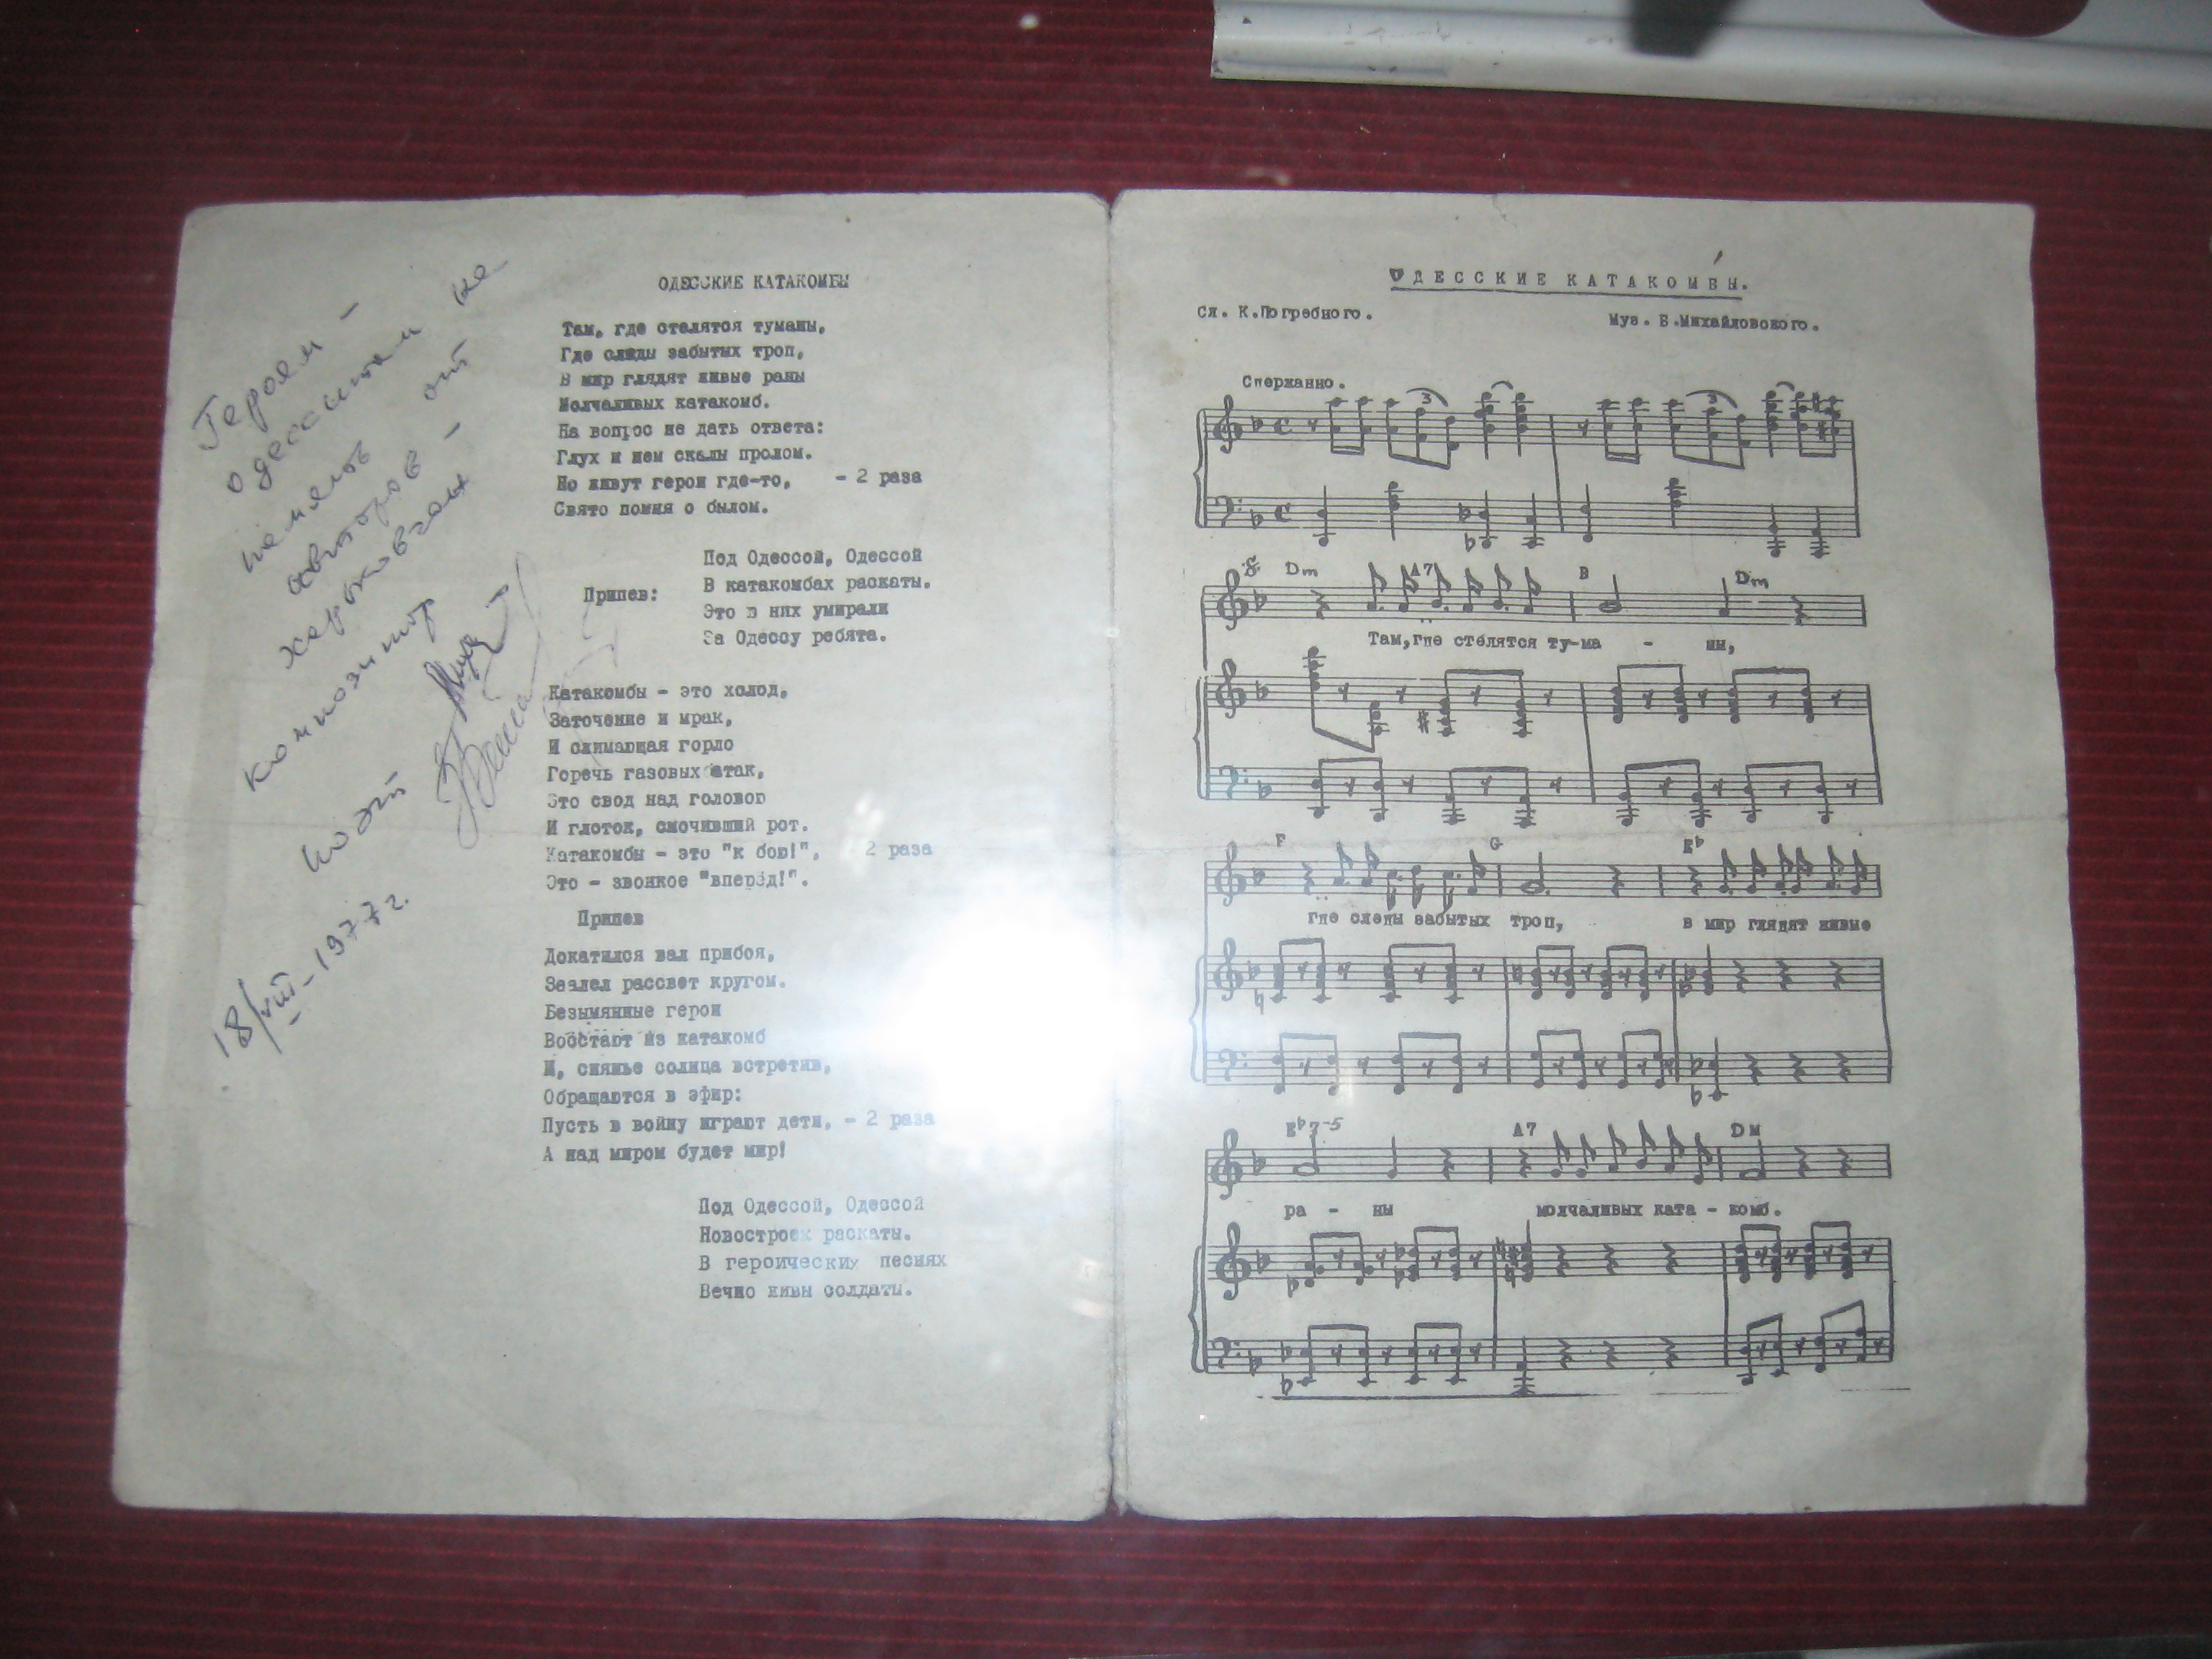 Героям -
одесситам на
память от
авторов -
харьковчан
композитор
поэт
18/VIII-1977г.
ОДЕССКИЕ КАТАКОМБЫ
Там, где стелятся туманы,
Где следы забытых троп,
В мир глядят живые раны
Молчаливых катакомб.
На вопрос не дать ответа:
Глух и нем скалы пролом.
Но живут герои где-то, - 2 раза
Свято помня о былом.
Под Одессой, Одессой
В катакомбах раскаты.
Припев:
Это в них умирали
За Одессу ребята.
Катакомбы - это холод,
Заточение и мрак,
И сжимающая горло
Горечь газовых атак,
Это свод над головою
И глоток, смочивший рот.
Катакомбы - это "к бою!", 2 раза
Это - звонкое "вперёд!".
Припев
Докатился вал прибоя,
Заалел рассвет кругом.
Безымянные герои
Восстают из катакомб
И, сиянье солнца встретив,
Обращаются в эфир:
Пусть в войну играют дети, - 2 раза
А над миром будет мир!
Под Одессой, Одессой
Новостроек раскаты.
В героических песнях
Вечно живы солдаты.
ОДЕССКИЕ КАТАКОМБЫ.
Сл. К.Погребного.
Муз. Б.Михайловского.
Сдержанно.
3 3
Dm A7 B Dm
Там,где стелятся ту-ма - ны,
F G Eb
где следы забытых троп, в мир глядят живые
Eb7-5 A7 Dm
ра - ны молчаливых ката - комб.